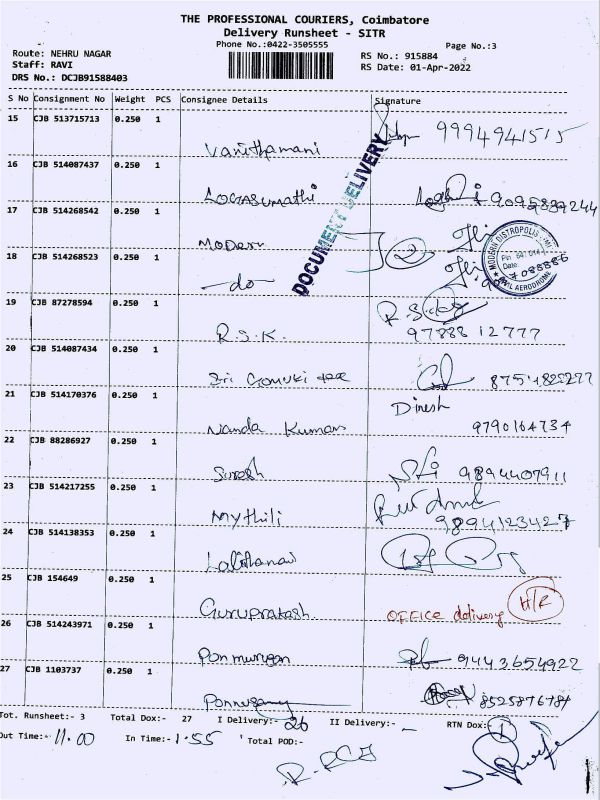 THE PROFESSIONAL COURIERS, Coimbatore
Delivery Runsheet - SITR
Phone No.:0422-3505555
Page No.:3
Route: NEHRU NAGAR
Staff: RAVI
DRS No.: DCJB91588403
RS No.: 915884
RS Date: 01-Apr-2022
S No Consignment No Weight PCS Consignee Details Signature
15 CJB 513715713 0.250 1
Vanithamani 9994941515
16 CJB 514087437 0.250 1
LOGASUMATHI
17 CJB 514268542 0.250 1
Modern
18 CJB 514268523 0.250 1
-do- 2
DOCUMENT DELIVERY
MODERN DISTROPOLIS
CIVIL AERODROME
19 CJB 87278594 0.250 1
R.S.K. 97888 12777
20 CJB 514087434 0.250 1
Sri Gomuki
21 CJB 514170376 0.250 1
Dinesh
Nanda Kumar 9790164734
22 CJB 88286927 0.250 1
Suresh 9894407911
23 CJB 514217255 0.250 1
Mythili 9894123427
24 CJB 514138353 0.250 1
25 CJB 154649 0.250 1
Guruprakash OFFICE delivery H/R
26 CJB 514243971 0.250 1
Ponmurugan 9443654922
27 CJB 1103737 0.250 1
Ponnusamy 8525876784
Tot. Runsheet:- 3 Total Dox:- 27 I Delivery:- 26 II Delivery:- - RTN Dox:- 1
Out Time:- 11.00 In Time:- 1.55 Total POD:-